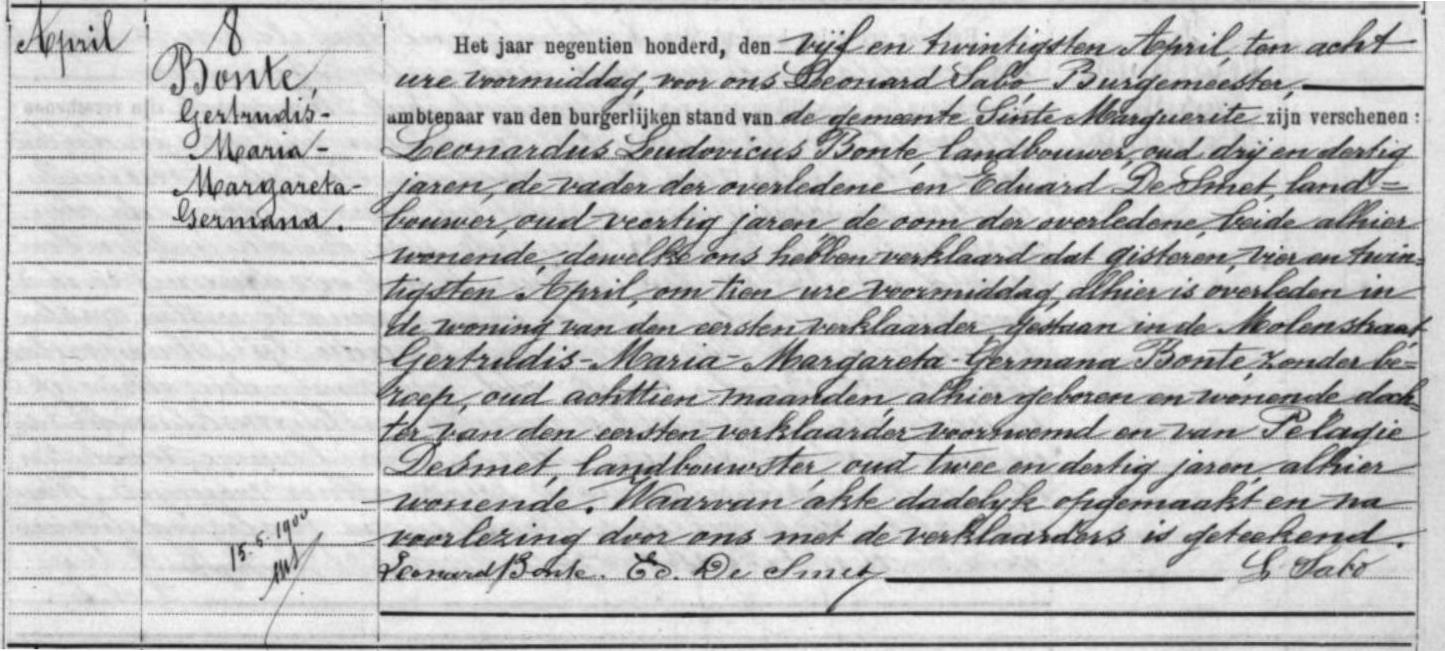 April
8
Bonte
Gertrudis-
Maria
Margareta-
Germana.
15-5-1900
Het jaar negentien honderd, den vijf en twintigsten April ten acht
ure voormiddag, voor ons Leonard Sabo Burgemeester,
ambtenaar van den burgerlijken stand van de gemeente Sinte Marguerite zijn verschenen :
Leonardus Ludovicus Bonte landbouwer, oud drij en dertig
jaren, de vader der overledene en Eduard De Smet land=
bouwer, oud veertig jaren, de oom der overledene beide alhier
wonende, dewelke ons hebben verklaard dat gisteren vier en twin=
tigsten April, om tien ure voormiddag, alhier is overleden in
de woning van den eersten verklaarder gestaan in de Molenstraat
Gertrudis-Maria-Margareta-Germana Bonte zonder be=
roep, oud achttien maanden alhier geboren en wonende doch=
ter van den eersten verklaarder voornoemd en van Pelagie
De Smet, landbouwster oud twee en dertig jaren, alhier
wonende. Waarvan akte dadelyk opgemaakt en na
voorlezing door ons met de verklaarders is geteekend.
Leonard Bonte. Ed. De Smet L. Sabo